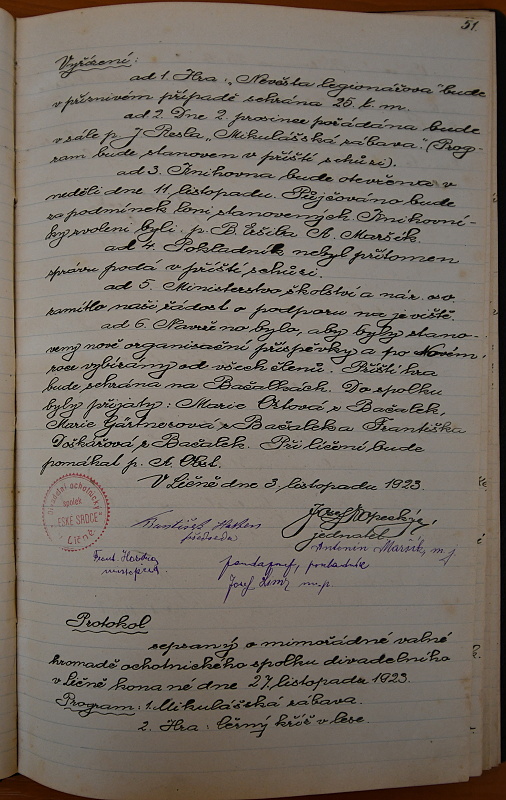 51.
Vyřízení:
ad 1. Hra: „Nevěsta legionářova" bude
v příznivém případě sehrána 25. t. m.
ad 2. Dne 2. prosince pořádána bude
v sále p. J. Resla „Mikulášská zábava. (Prog-
ram bude stanoven v příští schůzi).
ad 3. Knihovna bude otevřena v
neděli dne 11. listopadu. Půjčováno bude
za podmínek loni stanovených. Knihovní-
ky zvoleni byli: p. B. Češiba A. Maršík.
ad 4. Pokladník nebyl přítomen
zprávu podá v příští schůzi.
ad 5. Ministerstvo školství a nár. osv.
zamítlo naši žádost o podporu na jeviště.
ad 6. Navrženo bylo, aby byly stano-
veny nové organisační příspěvky a po Novém
roce vybírány od všech členů. Příští hra
bude sehrána na Bačalkách. Do spolku
byly přijaty: Marie Ortová z Bačalek,
Marie Gärtnerová z Bačalek a Františka
Doškářová z Bačalek. Při líčení bude
pomáhat p. A. Obst.
V Ličně dne 3. listopadu 1923.
Divadelní ochotnický
spolek
"ČESKÉ SRDCE"
v Ličně.
František
předseda
Josef Kopecký,
jednatel
Antonín Maršík, m.p.
Frant.
pokladník
Josef m.p.
Protokol
sepsaný o mimořádné valné
hromadě ochotnického spolku divadelního
v Ličně konané dne 27. listopadu 1923.
Program: 1. Mikulášská zábava.
2. Hra: Černý kříž v lese.